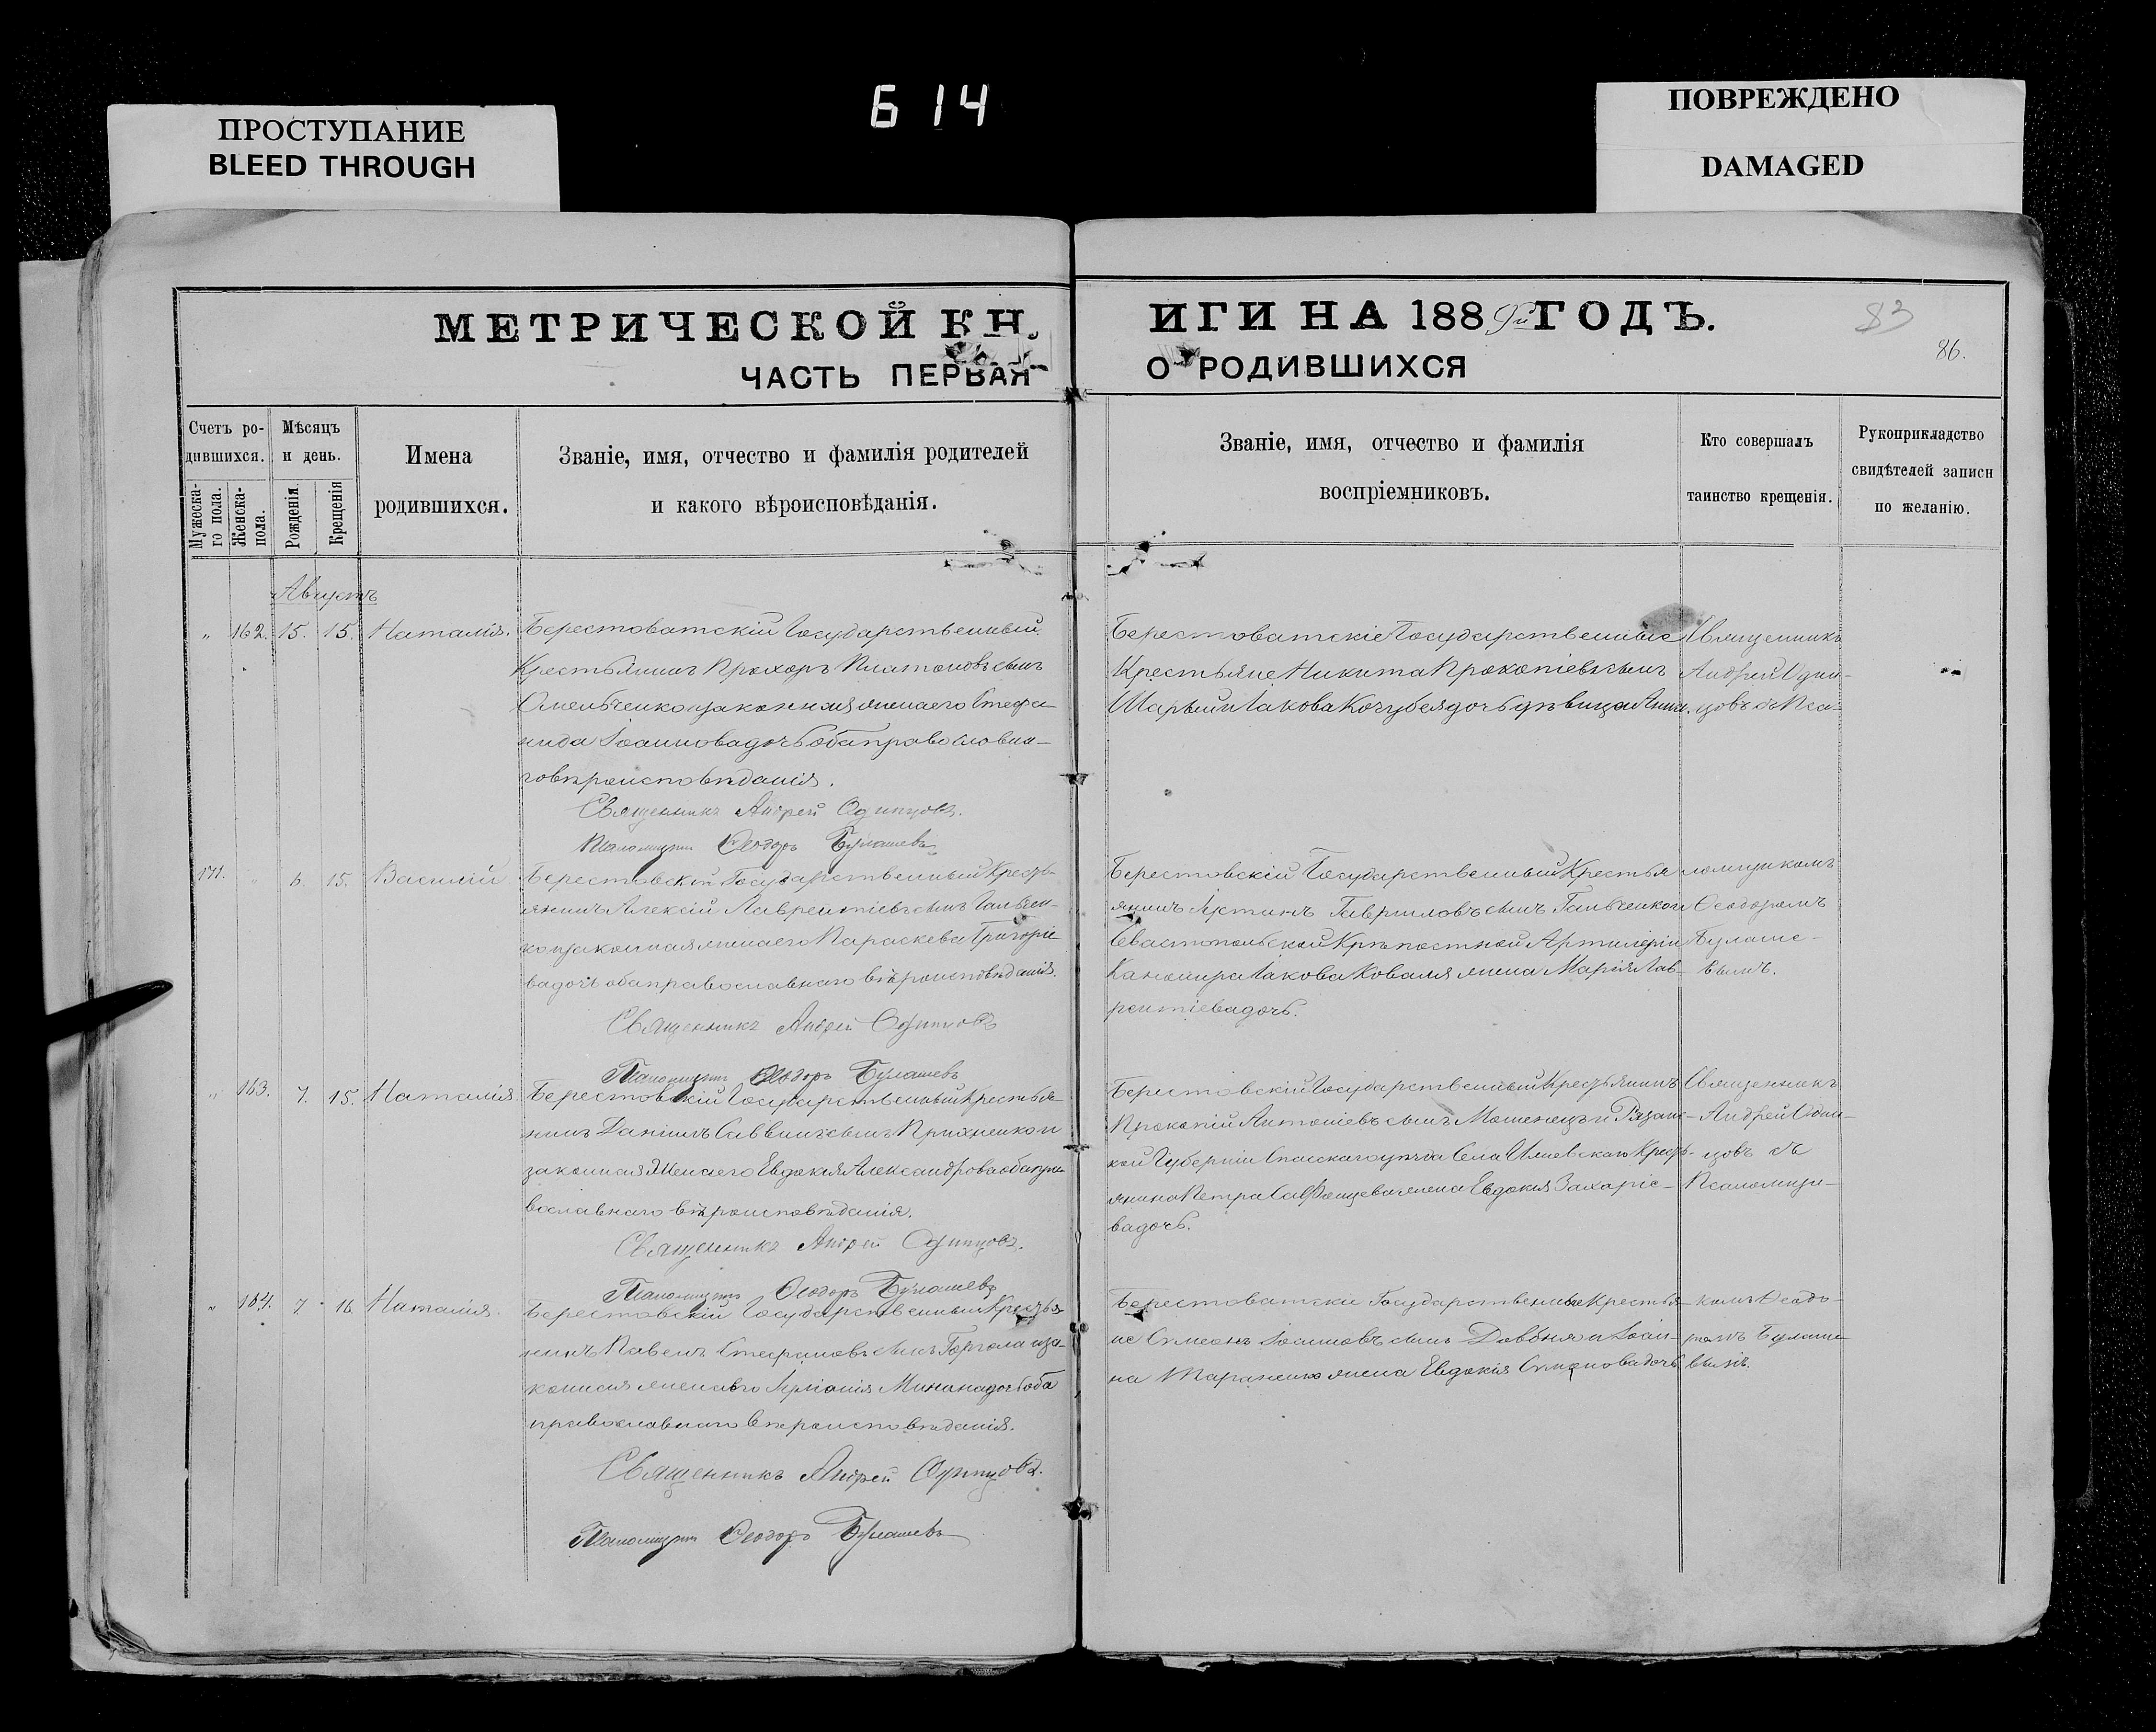 614
ПРОСТУПАНИЕ
BLEED THROUGH
ПОВРЕЖДЕНО
DAMAGED
МЕТРИЧЕСКОЙ КН
ИГИ НА 1889й ГОДЪ.
83
86.
ЧАСТЬ ПЕРВАЯ
О РОДИВШИХСЯ
Счетъ ро-
дившихся.
Мужеска-
го пола.
Женска-
пола.
Мѣсяцъ
и день.
Рожденія.
Крещенія
Имена
родившихся.
Званіе, имя, отчество и фамилія родителей
и какого вѣроисповѣданія.
Званіе, имя, отчество и фамилія
воспріемниковъ.
Кто совершалъ
таинство крещенія.
Рукоприкладство
свидѣтелей записи
по желанію.
Августъ
" 162. 15. 15. Наталія.
Берестоватскій Государственный
Крестьянинъ Прохоръ Платоновъ сынъ
Омельченко и законная жена его Стефа-
нида Іоаннова дочь оба православна-
го вѣроисповѣданія.
Священникъ Андрей Одинцовъ.
Псаломщикъ Ѳеодоръ Булашевъ
Берестоватскіе Государственные
Крестьяне Никита Прокопіевъ сынъ
Шарый и Іакова Кочубея дочь дѣвица Анна.
Священникъ
Андрей Один-
цовъ съ Пса-
171. " 6. 15. Василій
Берестовскій Государственный Кресть-
янинъ Алексій Лаврентіевъ сынъ Гальчен-
ко и законная жена его Параскева Григоріе-
ва дочь оба православнаго вѣроисповѣданія.
Священникъ Андрей Одинцовъ
Псаломщикъ Ѳеодоръ Булашевъ
Берестовскій Государственный Кресть
янинъ Гавриловъ сынъ Гальченко и
Севастопольской Крѣпостной Артилеріи
Канонира Іакова Коваля жена Марія Лав-
рентіева дочь.
ломщикомъ
Ѳеодоромъ
Булаше-
вымъ.
" 163. 7. 15. Наталія.
Берестовскій Государственный Крестья-
нинъ Даніилъ Саввинъ сынъ и
законная жена его Евдокія Александрова оба пра-
вославнаго вѣроисповѣданія.
Священникъ Андрей Одинцовъ.
Псаломщикъ Ѳеодоръ Булашевъ
Берестовскій Государственный Крестьянинъ
Прокопій Антоніевъ сынъ Мошенецъ и Рязанс-
кой Губерніи Спасскаго уѣзда Села Кресть-
янина Петра жена Евдокія Захаріе-
ва дочь.
Священникъ
Андрей Один-
цовъ съ
Псаломщи-
" 164. 7. 16. Наталія.
Берестовскій Государственный Крестья
нинъ Павелъ Стефановъ сынъ Горгола и за-
конная жена его Минина дочь оба
православнаго вѣроисповѣданія.
Священникъ Андрей Одинцовъ.
Псаломщикъ Ѳеодоръ Булашевъ
Берестоватскіе Государственные Крестья-
не Симеонъ Іоанновъ сынъ Довбня и Іоан-
на Тараненко жена Евдокія Симонова дочь
комъ Ѳеодо-
ромъ Булаше
вымъ.